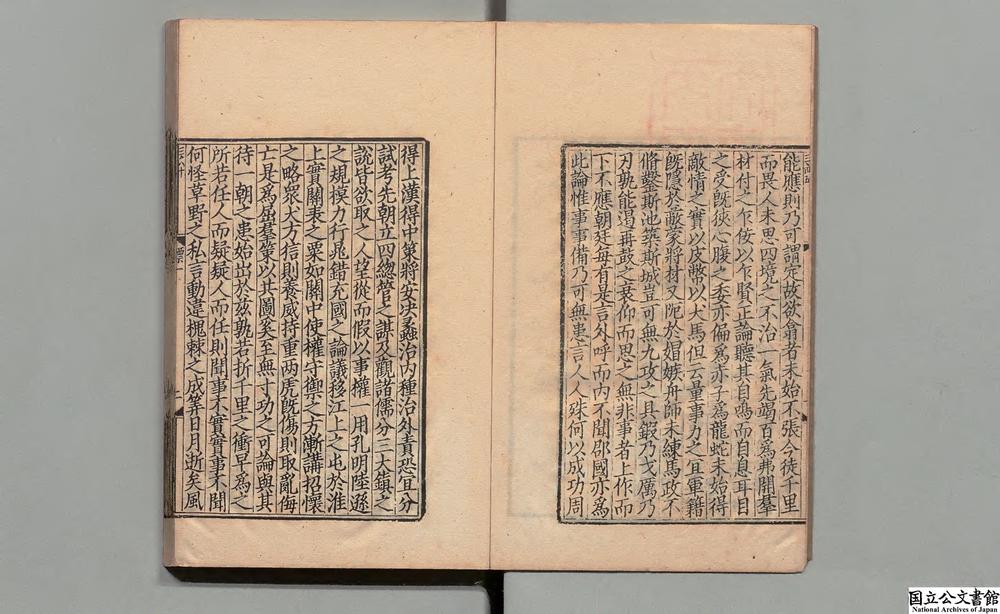 能應則乃可謂定故欲翕者未始不張今徒千里
而畏人未思四境之不治一氣先竭百爲弗開羣
材付之乍佞以乍賢正論聽其自鳴而自息耳目
之受旣狹心腹之委亦偏爲赤子爲龍蛇未始得
敵情之實以皮幣以犬馬但云量事力之宜軍籍
旣隱於蔽蒙將材又阨於媢嫉舟師未練馬政不
脩鑿斯池築斯城豈可無九攻之具鍜乃戈厲乃
刃孰能遏再鼓之衰仰而思之無非事者上作而
下不應朝廷每有是言外呼而内不聞郡國亦爲
此論惟事事備乃可無患言人人殊何以成功周
得上漢得中策將安決蠡治内種治外責恐宜分
試考先朝立四緫管之謀及觀諸儒分三大鎮之
說皆欲取之人望從而假以事權一用孔明陸遜
之規模力行晁錯充國之論議移江上之屯於淮
上實關表之粟如關中使權守禦之方漸講招懷
之略衆大方信則養威持重兩虎旣傷則取亂侮
亡是爲屈羣策以其圖奚至無寸功之可論與其
待一朝之患始出於兹孰若折千里之衝早爲之
所若任人而疑疑人而任則聞事不實實事不聞
何怪草野之私言動違槐棘之成筭日月逝矣風
国立公文書館
National Archives of Japan